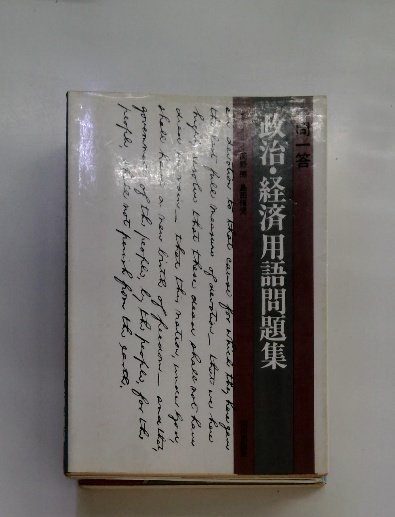 問一答
政治・経済用語問題集
devotion to that cause for which they here gave
the last full measure of devotion— that we here
highly resolve that these dead shall not have
died in vain— that this nation, under God,
shall have a new birth of freedom— and that
government of the people, by the people, for the
people, shall not perish from the earth.